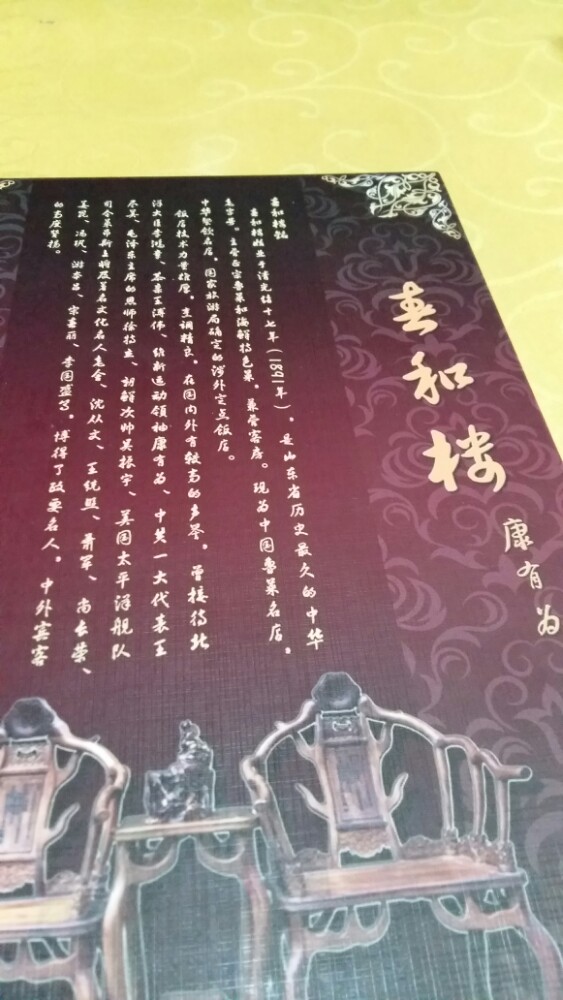 春和楼
康有为
春和楼铭
春和楼始业于清光绪十七年(1891年)，是山东省历史最久的中华
老字号。主营正宗鲁菜和海鲜特色菜。兼营客房。现为中国鲁菜名店。
中华餐饮名店。国家旅游局确定的涉外定点饭店。
饭店技术力量雄厚。烹调精良。在国内外有较高的声誉。曾接待北
洋大臣李鸿章、恭亲王溥伟、维新运动领袖康有为、中共一大代表王
尽美、毛泽东主席的恩师徐特立、朝鲜次帅吴振宇、美国太平洋舰队
司令莱昂斯上将及著名文化名人老舍、沈从文、王统照、萧军、尚长荣、
姜昆、冯巩、游本昌、宋春丽、李国盛等。博得了政要名人。中外宾客
的高度赞扬。